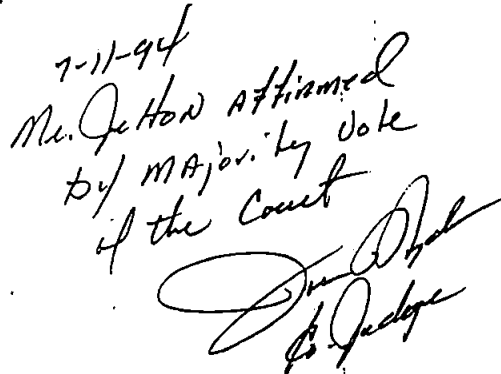 7-11-94
Mr. Jetton Affirmed
by majority vote
of the Court
Co. Judge